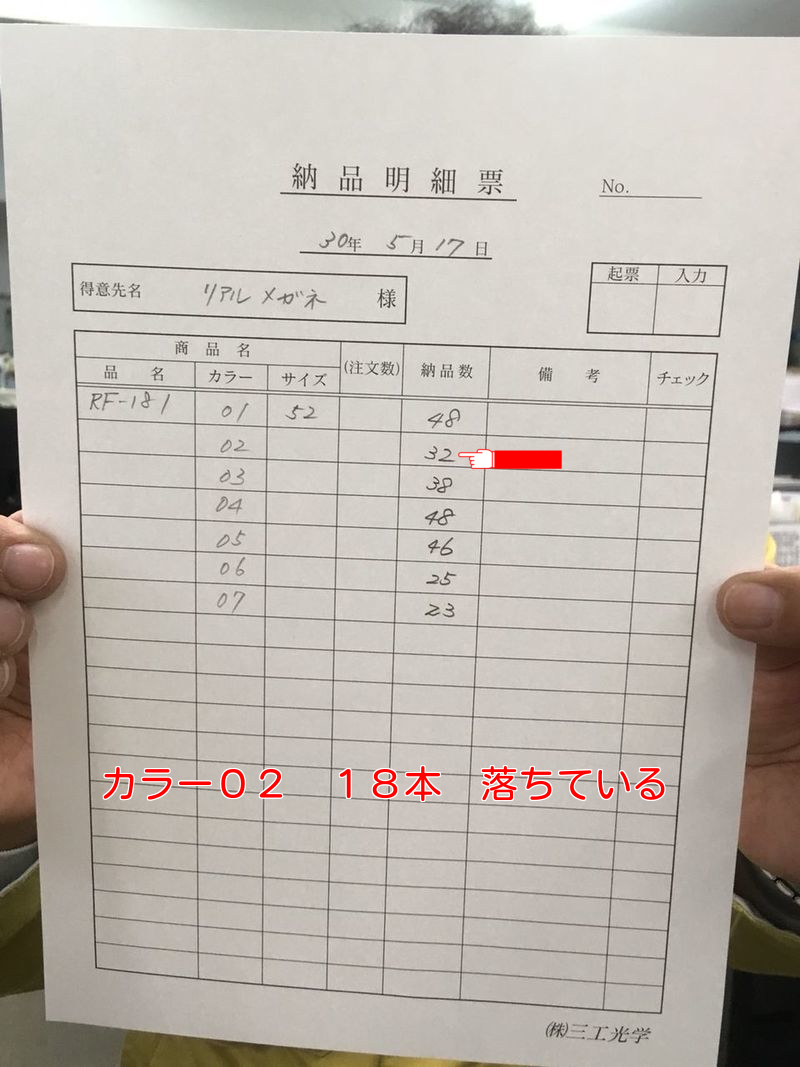 納品明細票
No.
30年 5月17日
得意先名 リアルメガネ 様
起票 入力
商品名 (注文数) 納品数 備考 チェック
品名 カラー サイズ
RF-181 01 52 48
02 32
03 38
04 48
05 46
06 25
07 23
カラー０２　１８本　落ちている
㈱三工光学